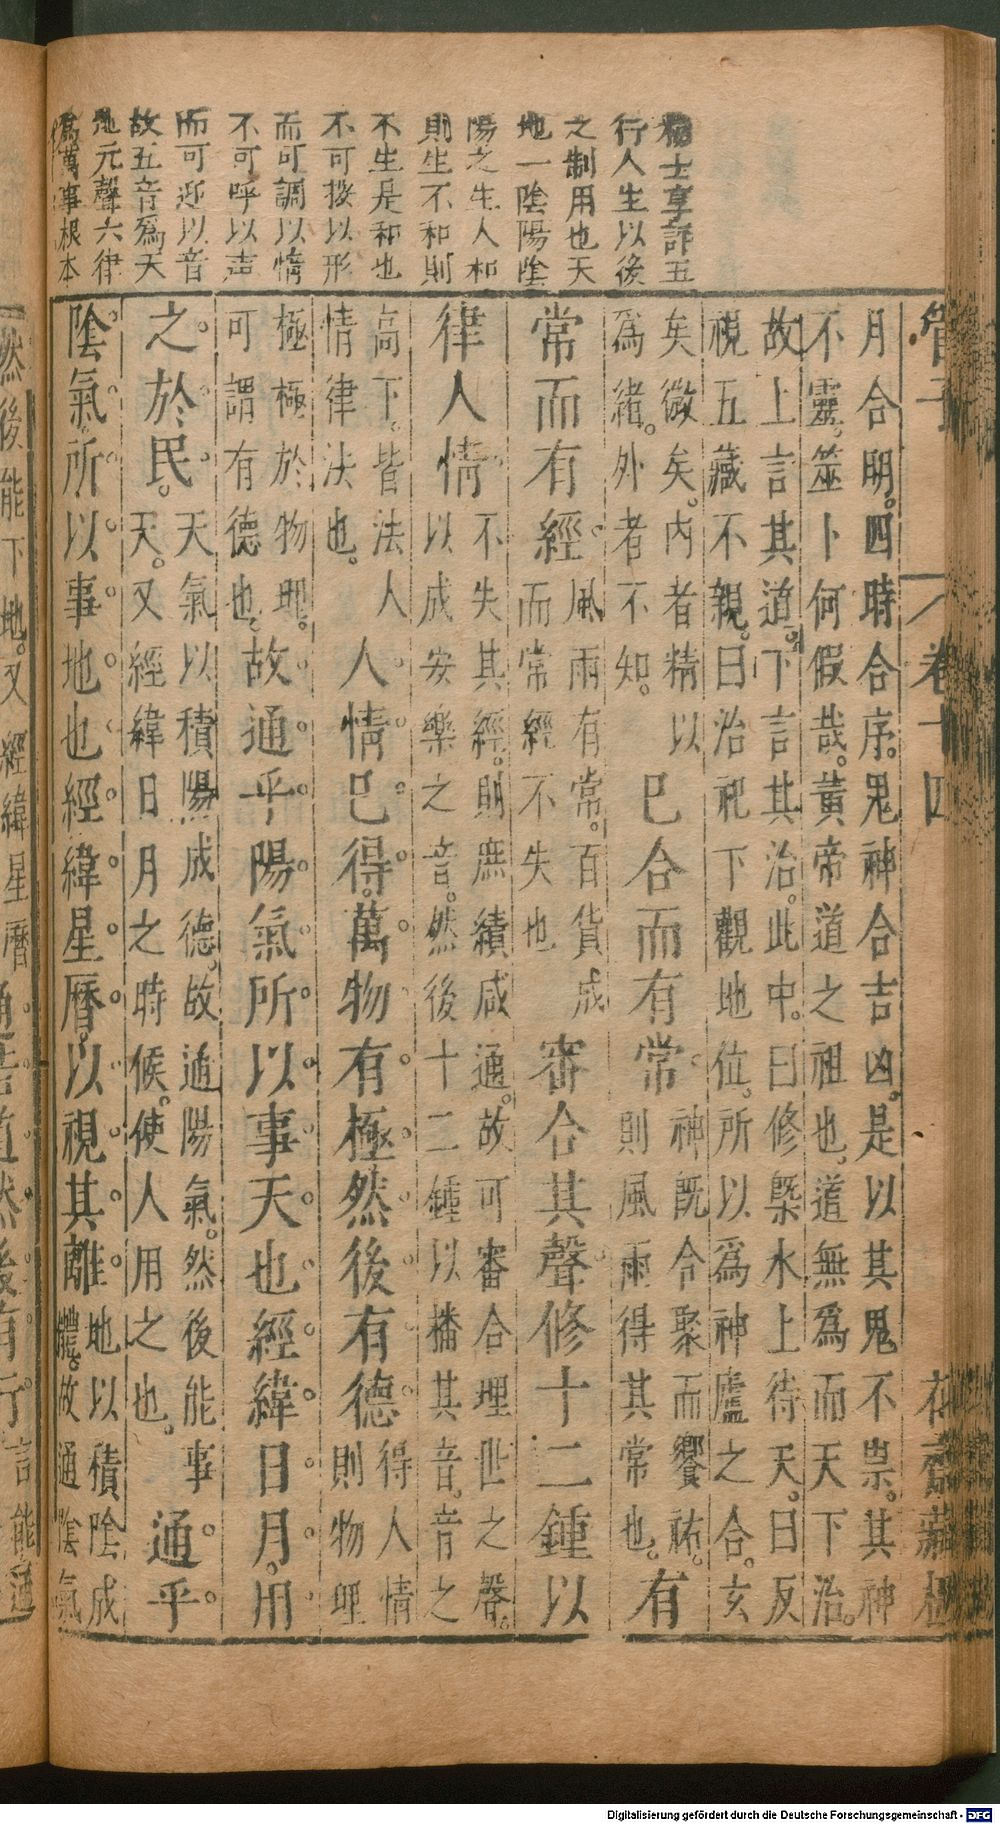 楊士享評五
行人生以後
之制用也天
地一陰陽陰
陽之生人和
則生不和則
不生是和也
不可授以形
而可調以情
不可呼以声
而可迎以音
故五音爲天
地元聲六律
爲萬事根本
管子
卷十四
花齋藏板
月合明。四時合序。鬼神合吉凶。是以其鬼不祟。其神
不靈。筮卜何假哉。黃帝道之祖也。道無爲而天下治。
故上言其道。下言其治。此中。曰修槩水上待天。曰反
視五藏不親。曰治祀下觀地位。所以爲神廬之合。玄
矣微矣。內者精以
爲緒。外者不知。
巳合而有常。
神既合聚而饗祐。
則風雨得其常也。
有
常而有經。
風雨有常。百貨成
而常經不失也
審合其聲。修十二鍾以
律人情。
不失其經。則庶績咸通。故可審合理世之聲。
以成安樂之音。然後十二鍾以播其音。音之
高下。皆法人
情律法也。
人情巳得。萬物有極。然後有德。
得人情
則物理
極極於物理。
可謂有德也。
故通乎陽氣所以事天也。經緯日月。用
之於民。
天氣以積陽成德。故通陽氣。然後能事
天。又經緯日月之時候。使人用之也。
通乎
陰氣。所以事地也。經緯星曆。以視其離。
地以積陰成
體。故通陰氣
然後能下地。又
經緯星曆
通若道然後有行
言能通
Digitalisierung gefördert durch die Deutsche Forschungsgemeinschaft - DFG